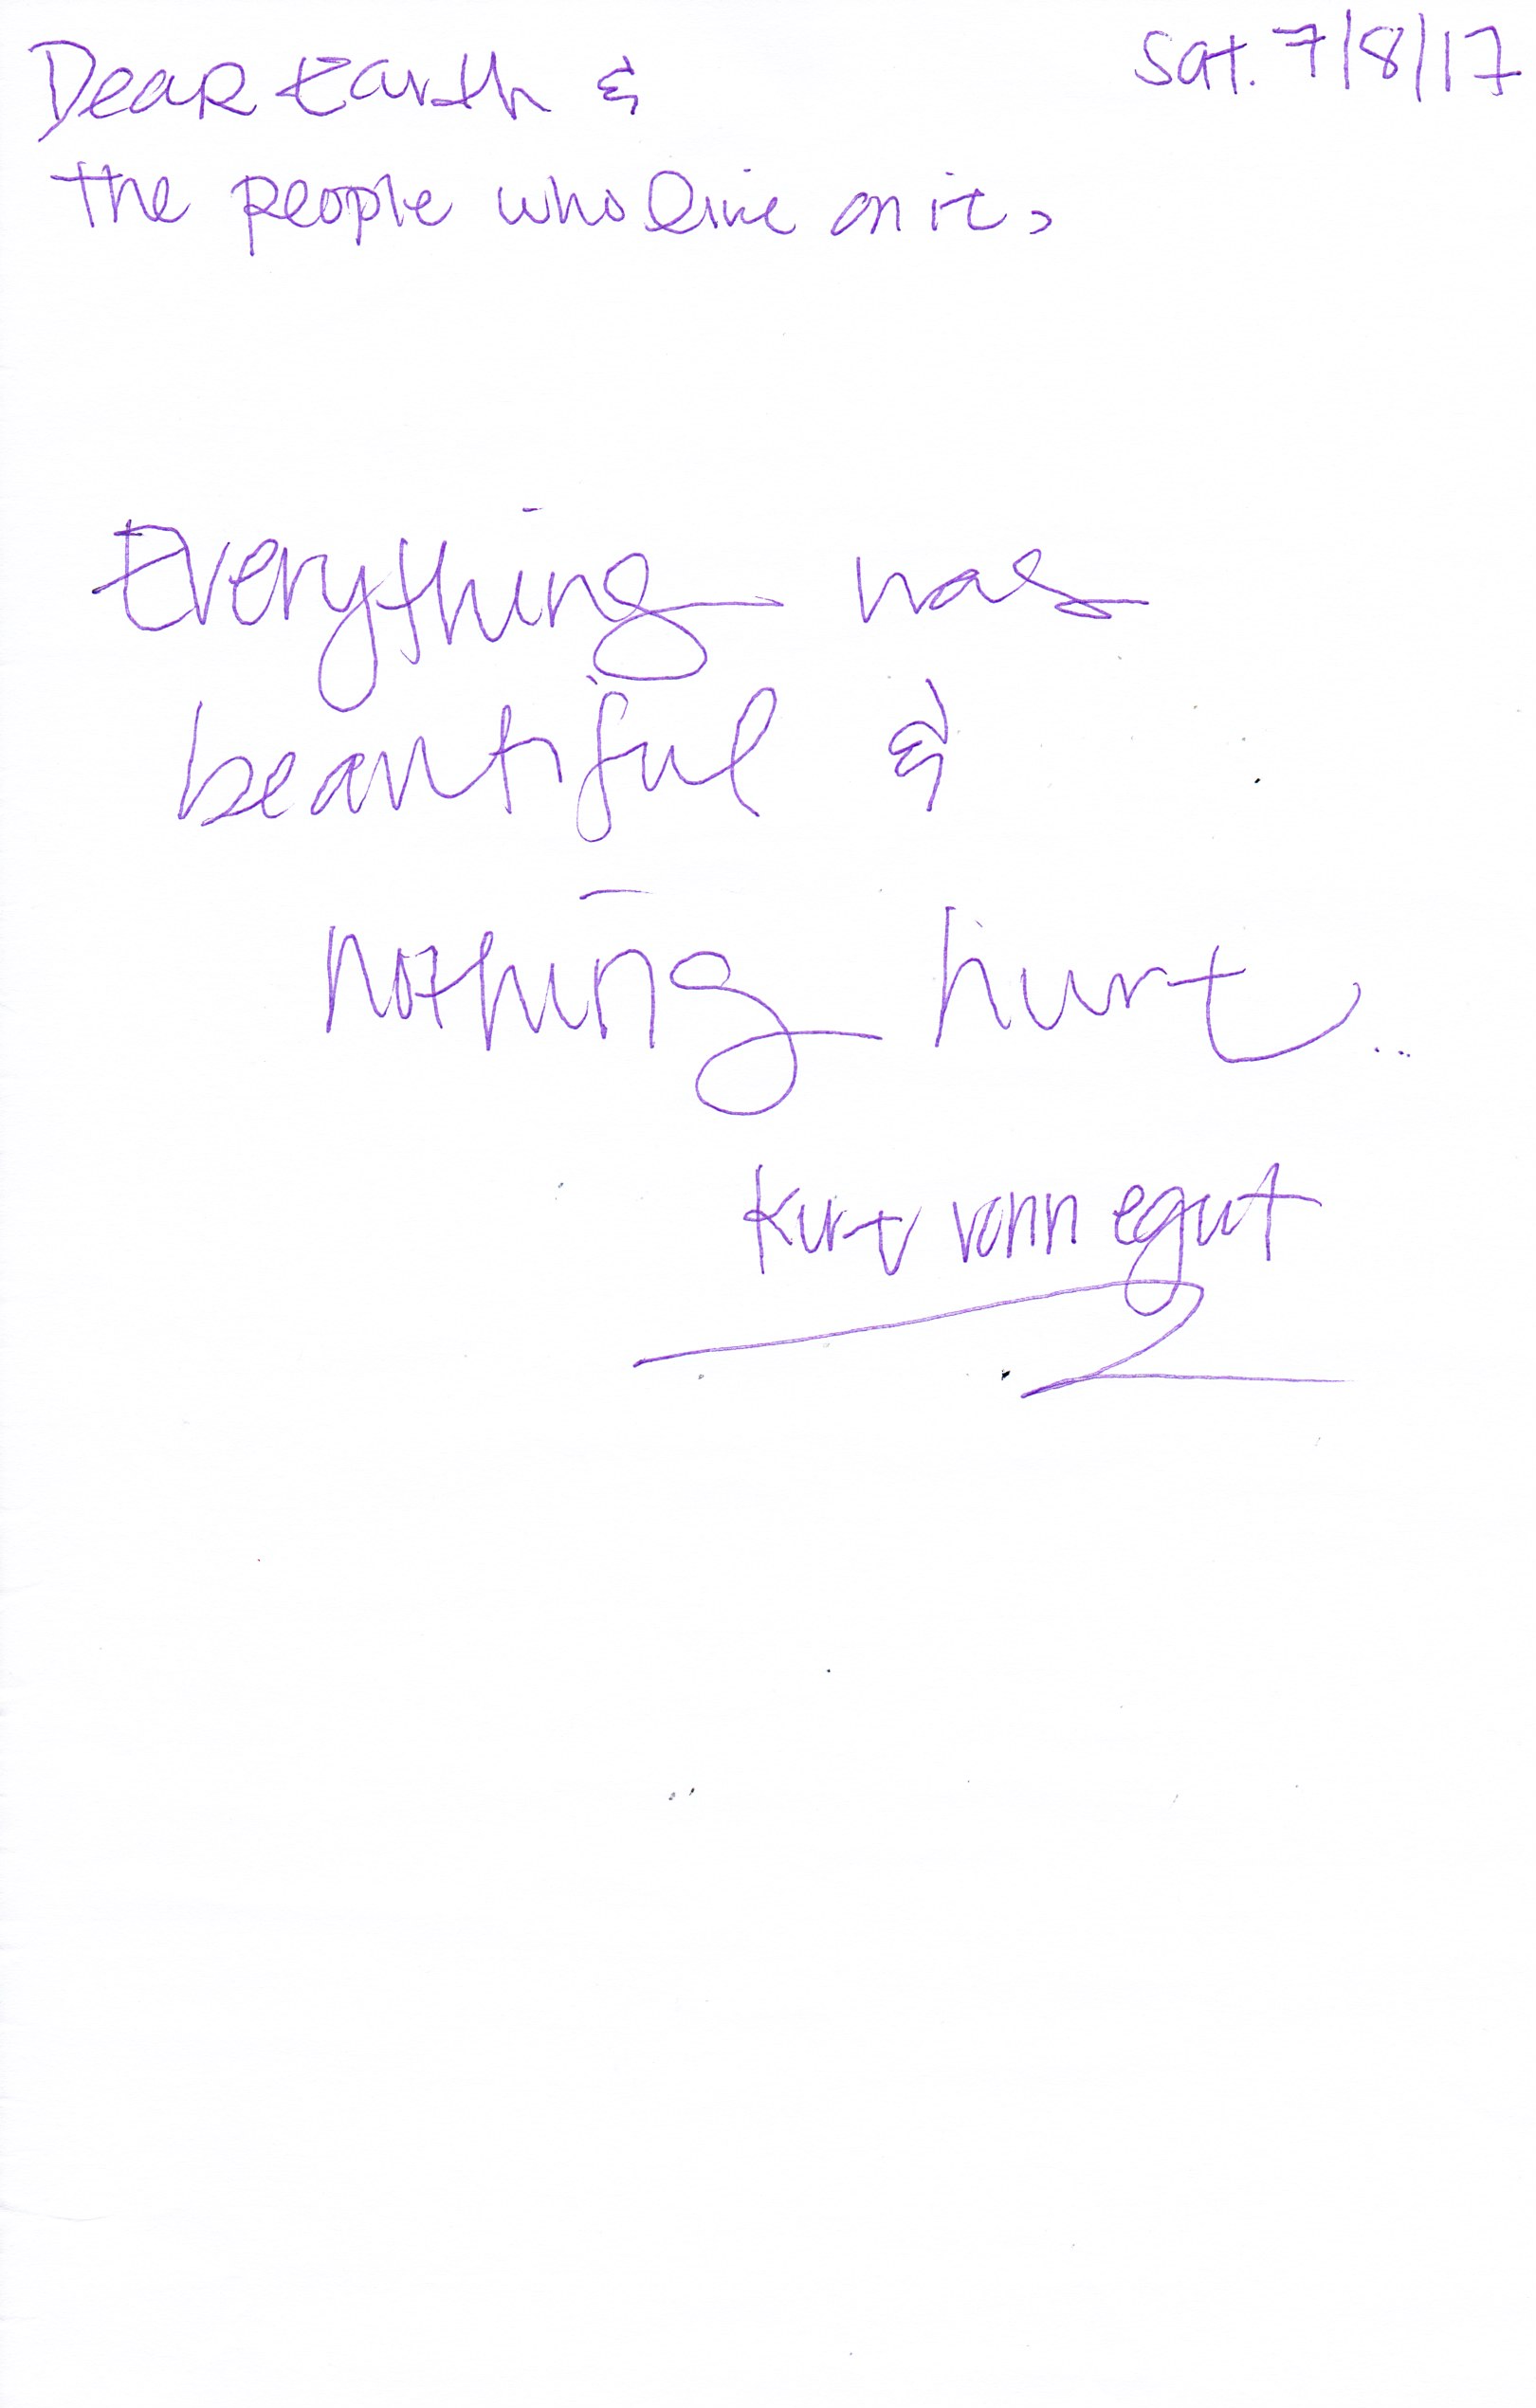 Sat. 7/8/17
Dear Earth &
the people who live on it,
Everything was
beautiful &
nothing hurt...
Kurt Vonnegut